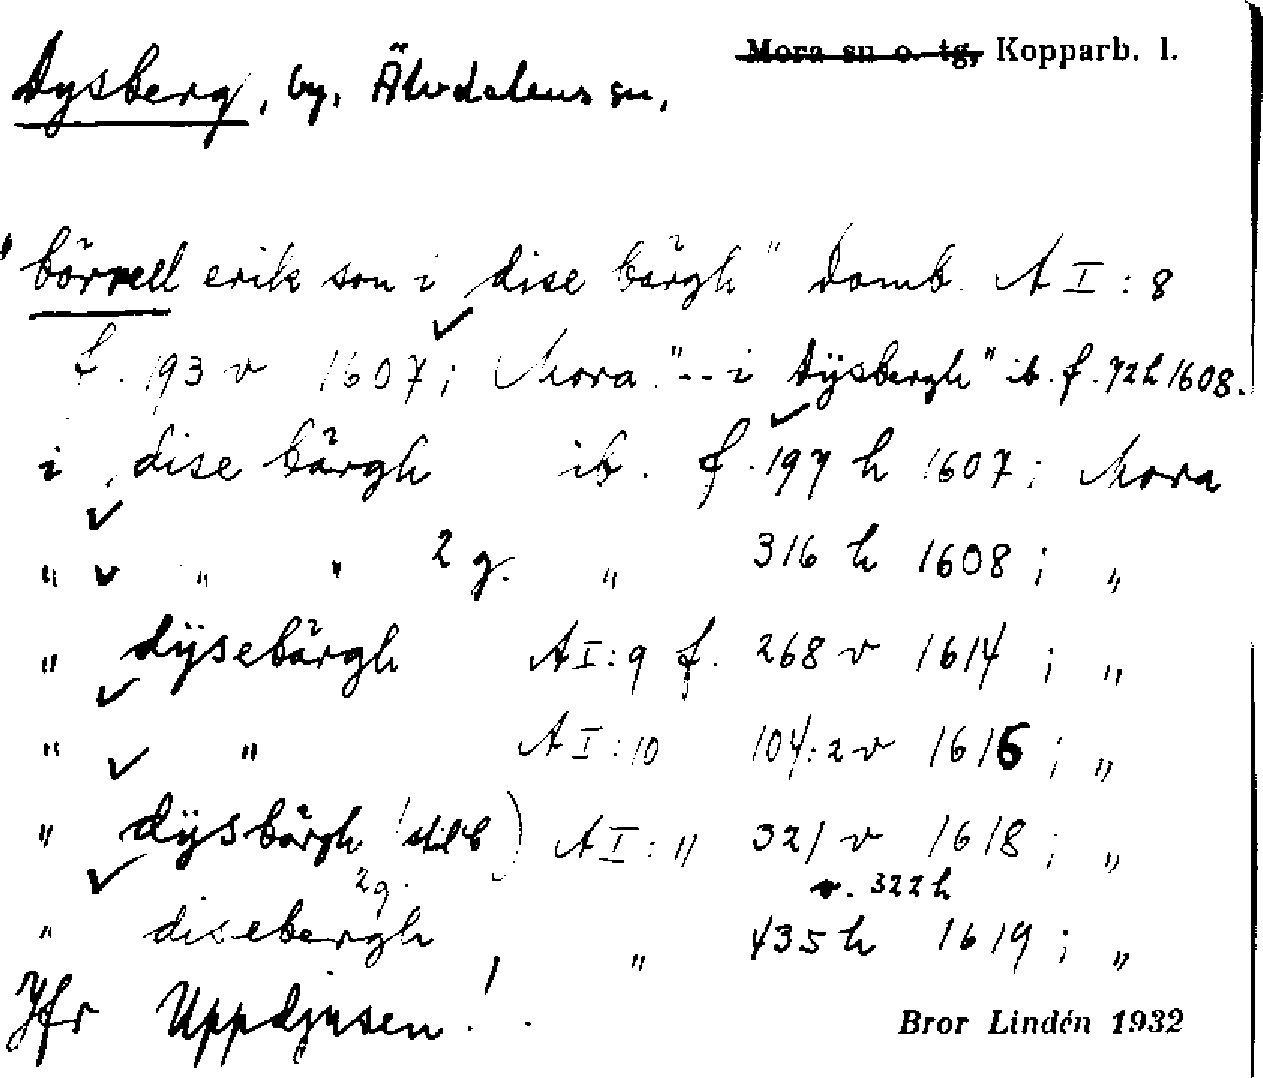 Mora sn o. tg, Kopparb. l.
Dysberg, by, Älvdalens sn,
"börrell erik son i dise bärgh" Domb. A I : 8
f. 193 v 1607; Mora. "-- i Dÿsbergh" ib. f. 72h 1608.
i dise bärgh ib. f. 197 h 1607; Mora
" " " 2 g. " 316 h 1608; "
" dÿsebärgh A I : 9 f. 268 v 1614; "
" " A I : 10 104:2 v 1616; "
" dÿsbärgh A I : 11 321 v 1618; "
2g. v. 322 h
" disebergh " 435 h 1619; "
Jfr Uppdjusen!
Bror Lindén 1932